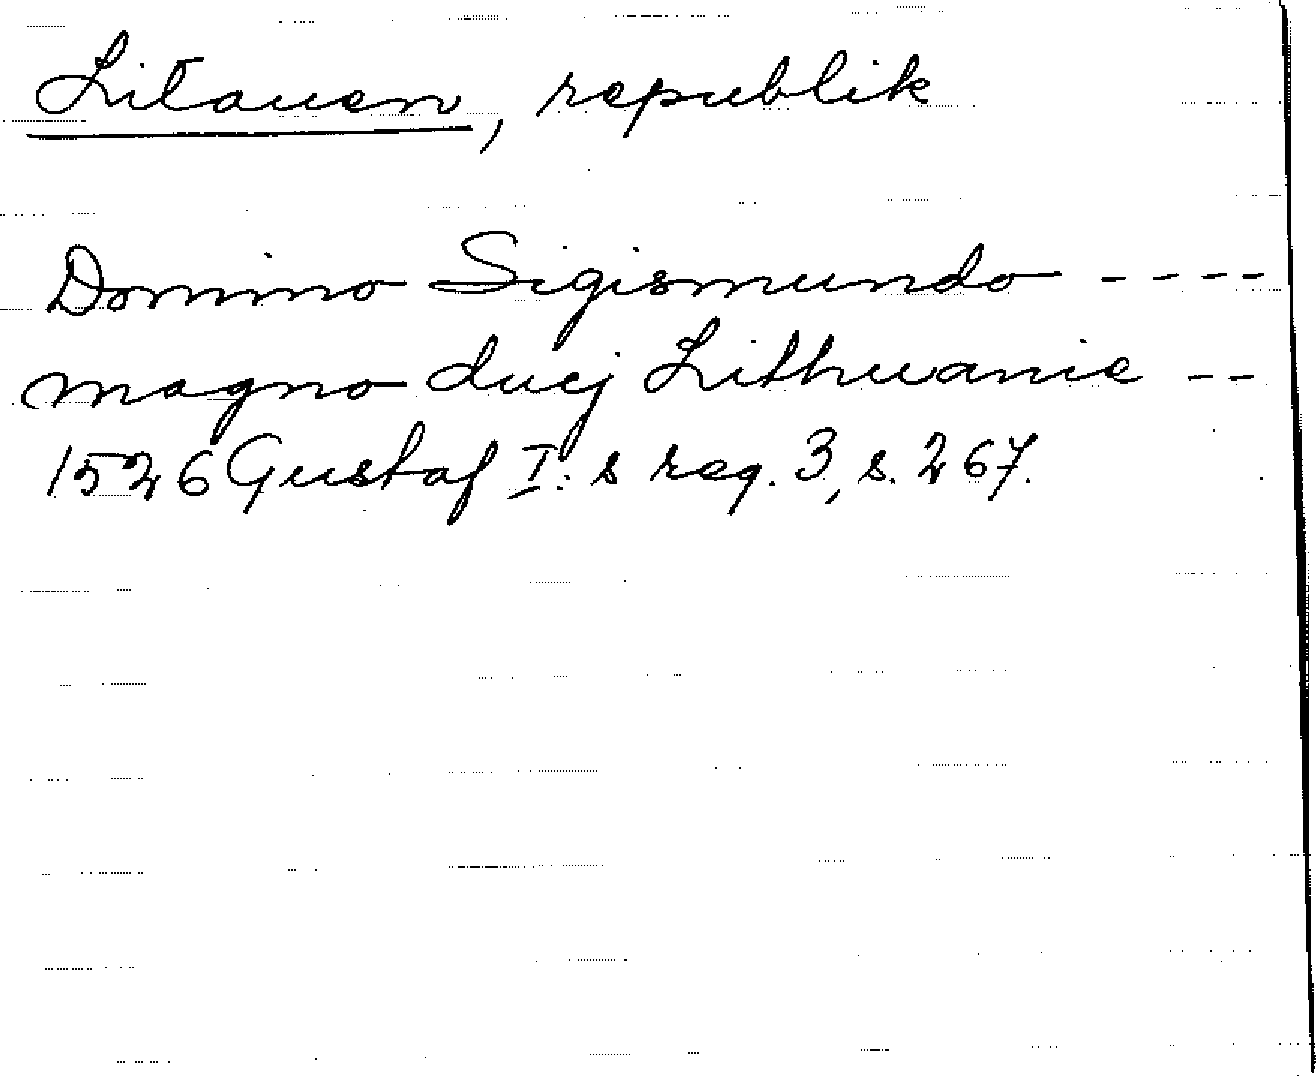 Litauen, republik
Domino Sigismundo ----
magno ducj Lithuanie --
1526 Gustaf I:s reg. 3, s. 267.